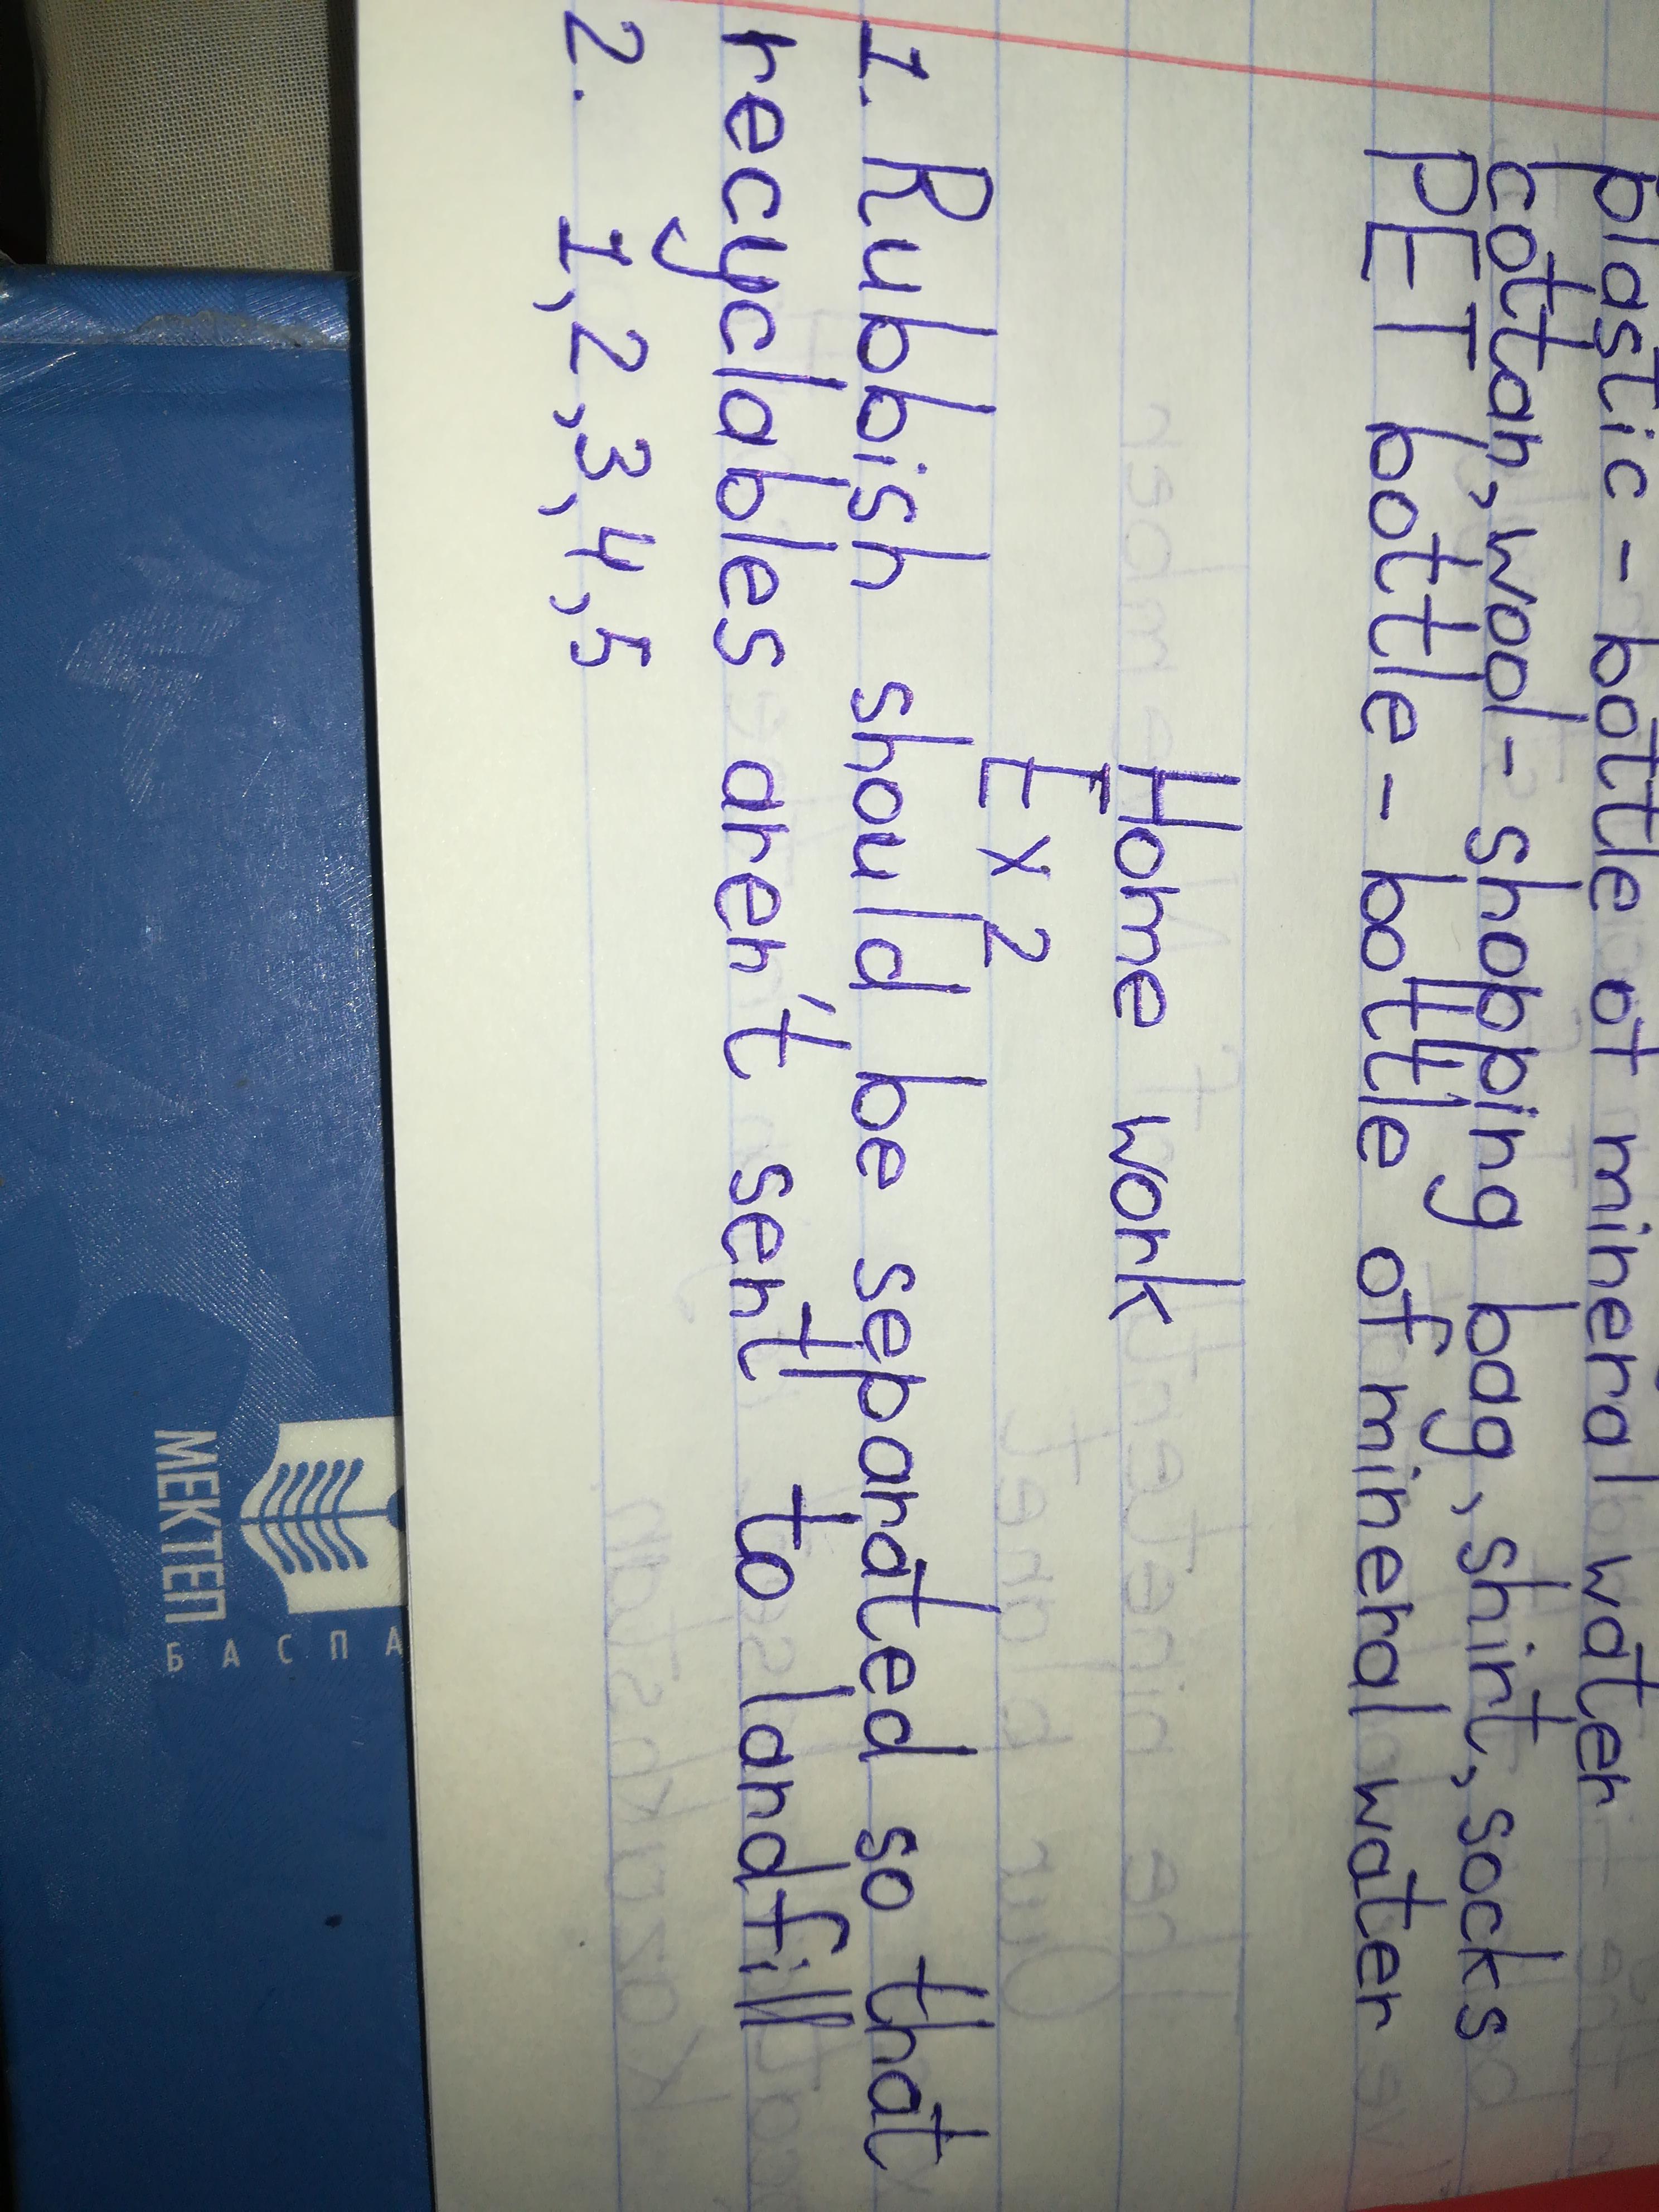 plastic - bottle of mineral water
cottan, wool - shopping bag, shirt, socks
PET bottle - bottle of mineral water
Home work
Ex 2
1. Rubbish should be separated so that
recyclables aren't sent to landfill
2. 1,2,3,4,5
МЕКТЕП
БАСПА